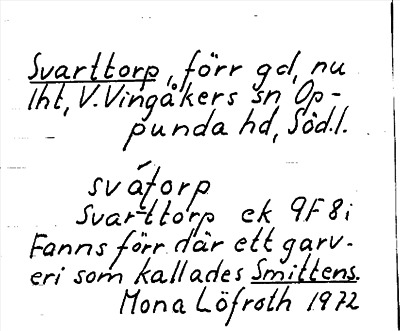 Svarttorp, förr gd, nu
lht, V. Vingåkers sn, Op-
punda hd, Söd.l.
svátorp
Svarttorp ek 9F8i
Fanns förr där ett garv-
eri som kallades Smittens.
Mona Löfroth 1972